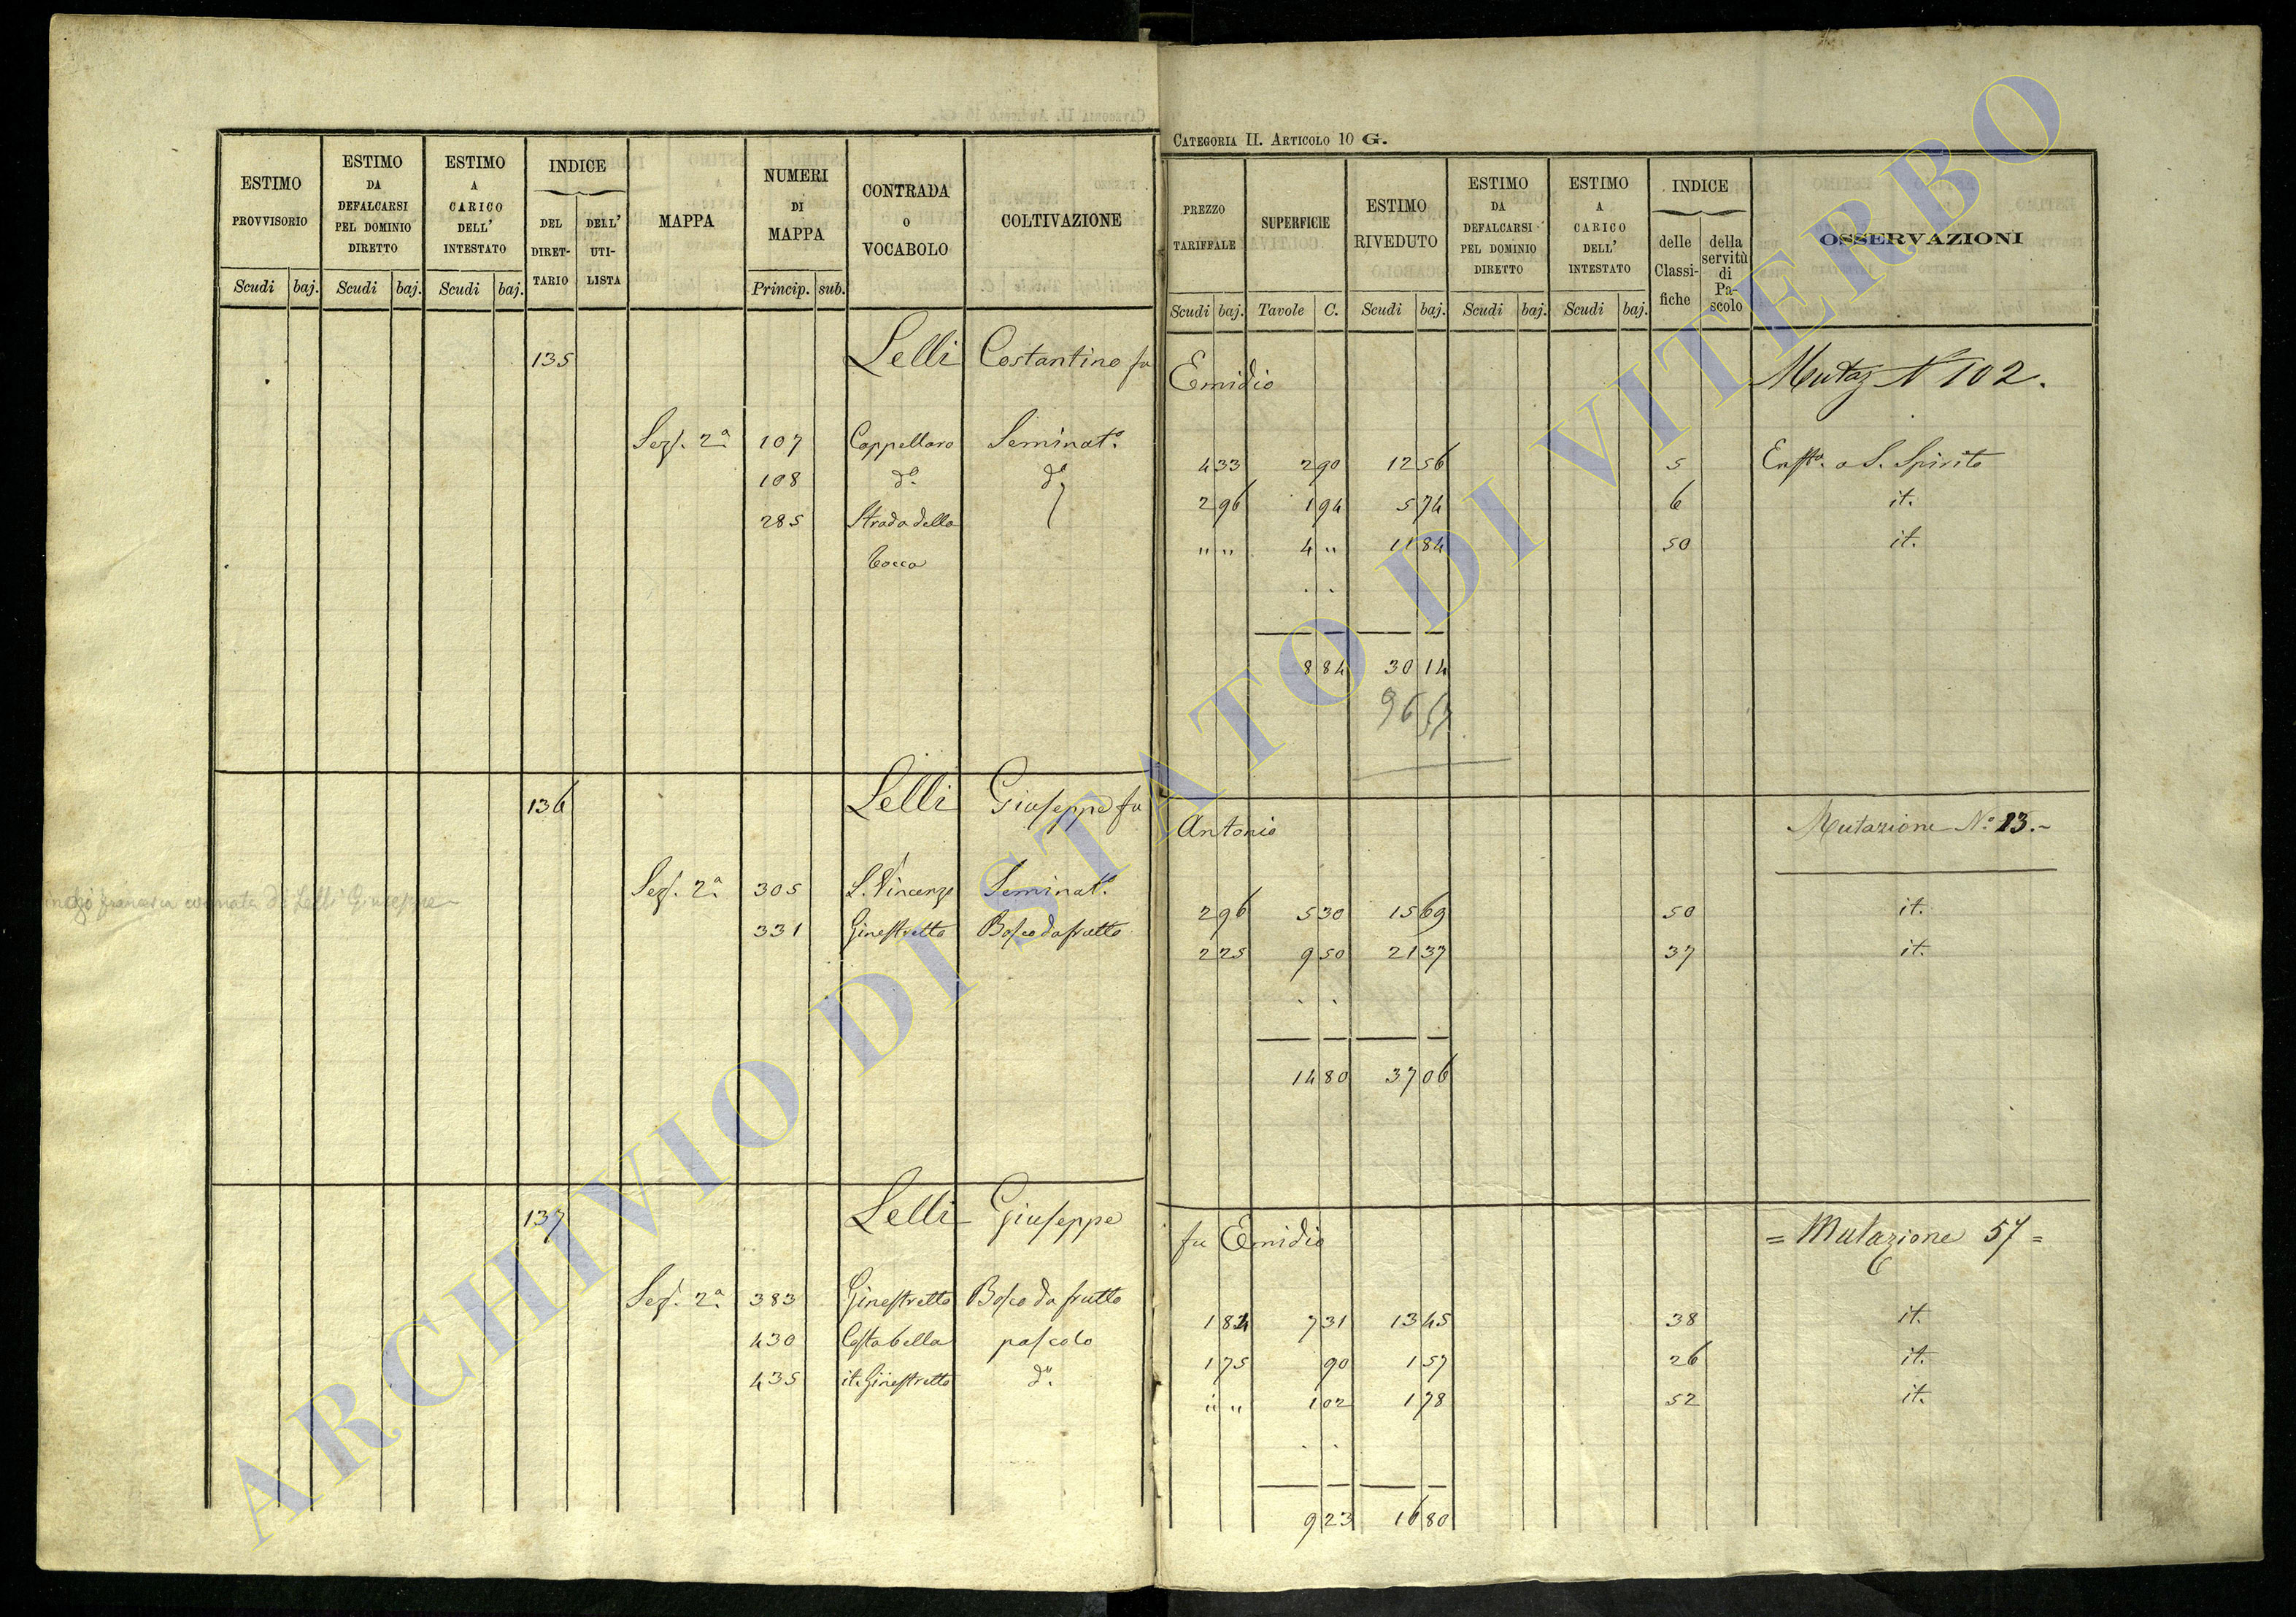 CATEGORIA II. ARTICOLO 10 G.
ESTIMO PROVVISORIO | ESTIMO DA DEFALCARSI PEL DOMINIO DIRETTO | ESTIMO A CARICO DELL' INTESTATO | INDICE | MAPPA | NUMERI DI MAPPA | CONTRADA O VOCABOLO | COLTIVAZIONE | PREZZO TARIFFALE | SUPERFICIE | ESTIMO RIVEDUTO | ESTIMO DA DEFALCARSI PEL DOMINIO DIRETTO | ESTIMO A CARICO DELL' INTESTATO | INDICE | OSSERVAZIONI
DEL DIRETTARIO | DELL' UTILISTA | delle Classifiche | della servitù di Pascolo
Scudi | baj. | Scudi | baj. | Scudi | baj. | Princip. | sub. | Scudi | baj. | Tavole | C. | Scudi | baj. | Scudi | baj. | Scudi | baj.
135 Lelli Costantino fu Emidio Mutaz N 102.
Sez. 2a 107 Cappellaro Seminato. 4 33 2 90 12 56 5 Enfta. a S. Spirito
108 do. do. 2 96 1 94 5 74 6 it.
285 Strada della " " 4 " 11 84 50 it.
Cocca
8 84 30 14
136 Lelli Giuseppe fu Antonio Mutazione No. 13.
Sez. 2a 305 S. Vincenzo Seminato. 2 96 5 30 15 69 50 it.
di Lelli Giuseppe
331 Ginestretto Bosco da frutto 2 25 9 50 21 37 37 it.
14 80 37 06
137 Lelli Giuseppe fu Emidio = Mutazione 57 =
Sez. 2a 383 Ginestretto Bosco da frutto 1 84 7 31 13 45 38 it.
430 Costa bella pascolo 1 75 90 1 57 26 it.
435 it. Ginestretto do. " " 1 02 1 78 52 it.
9 23 16 80
ARCHIVIO DI STATO DI VITERBO